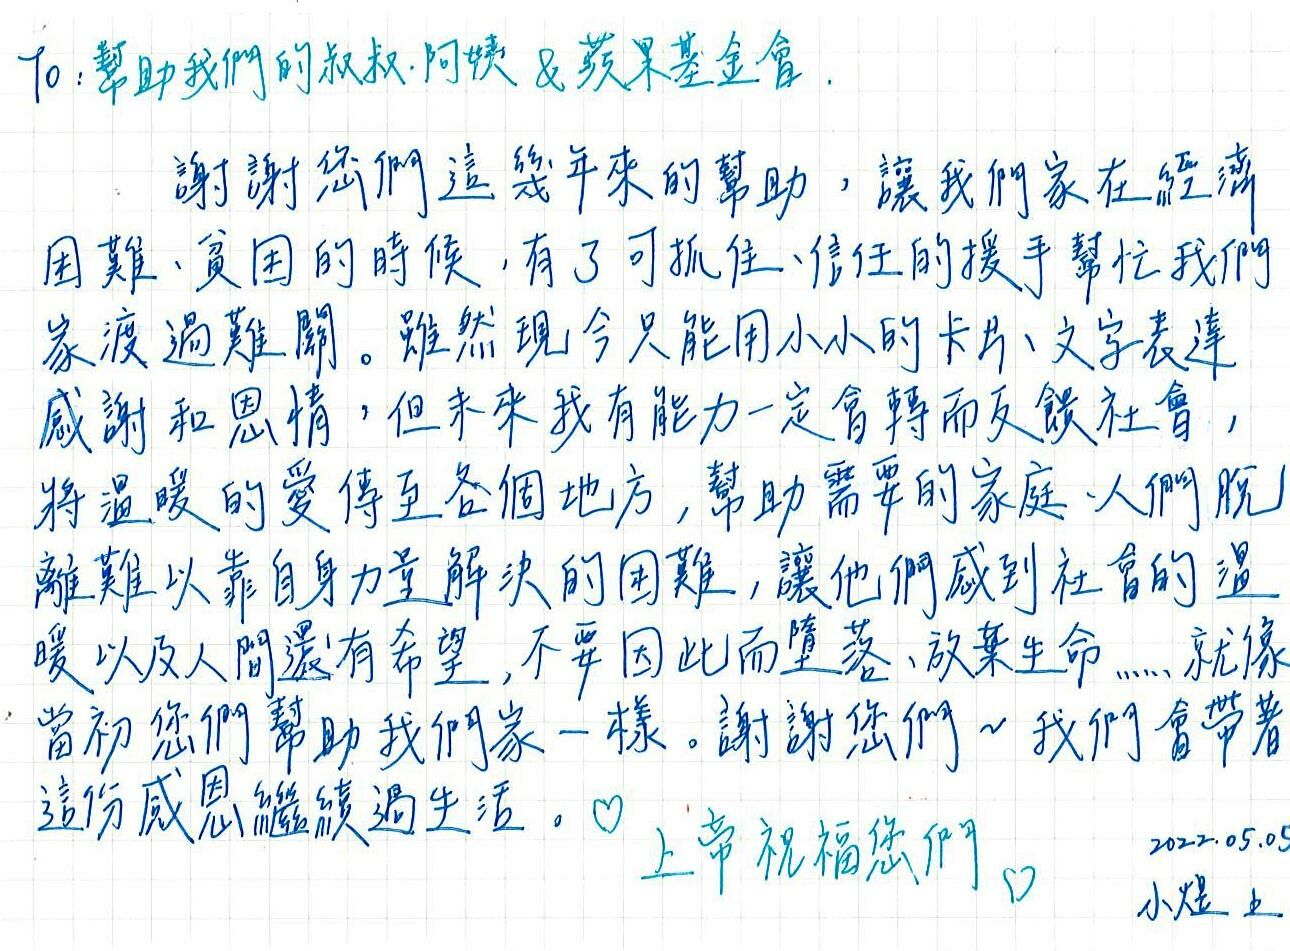 To：幫助我們的叔叔.阿姨 & 蘋果基金會.
謝謝您們這幾年來的幫助，讓我們家在經濟
困難、貧困的時候，有了可抓住、信任的援手幫忙我們
家渡過難關。雖然現今只能用小小的卡片、文字表達
感謝和恩情，但未來我有能力一定會轉而反饋社會，
將溫暖的愛傳至各個地方，幫助需要的家庭、人們脫
離難以靠自身力量解決的困難，讓他們感到社會的溫
暖以及人間還有希望，不要因此而墮落、放棄生命......就像
當初您們幫助我們家一樣。謝謝您們~我們會帶著
這份感恩繼續過生活。♡
上帝祝福您們♡
2022.05.05
小煜 上